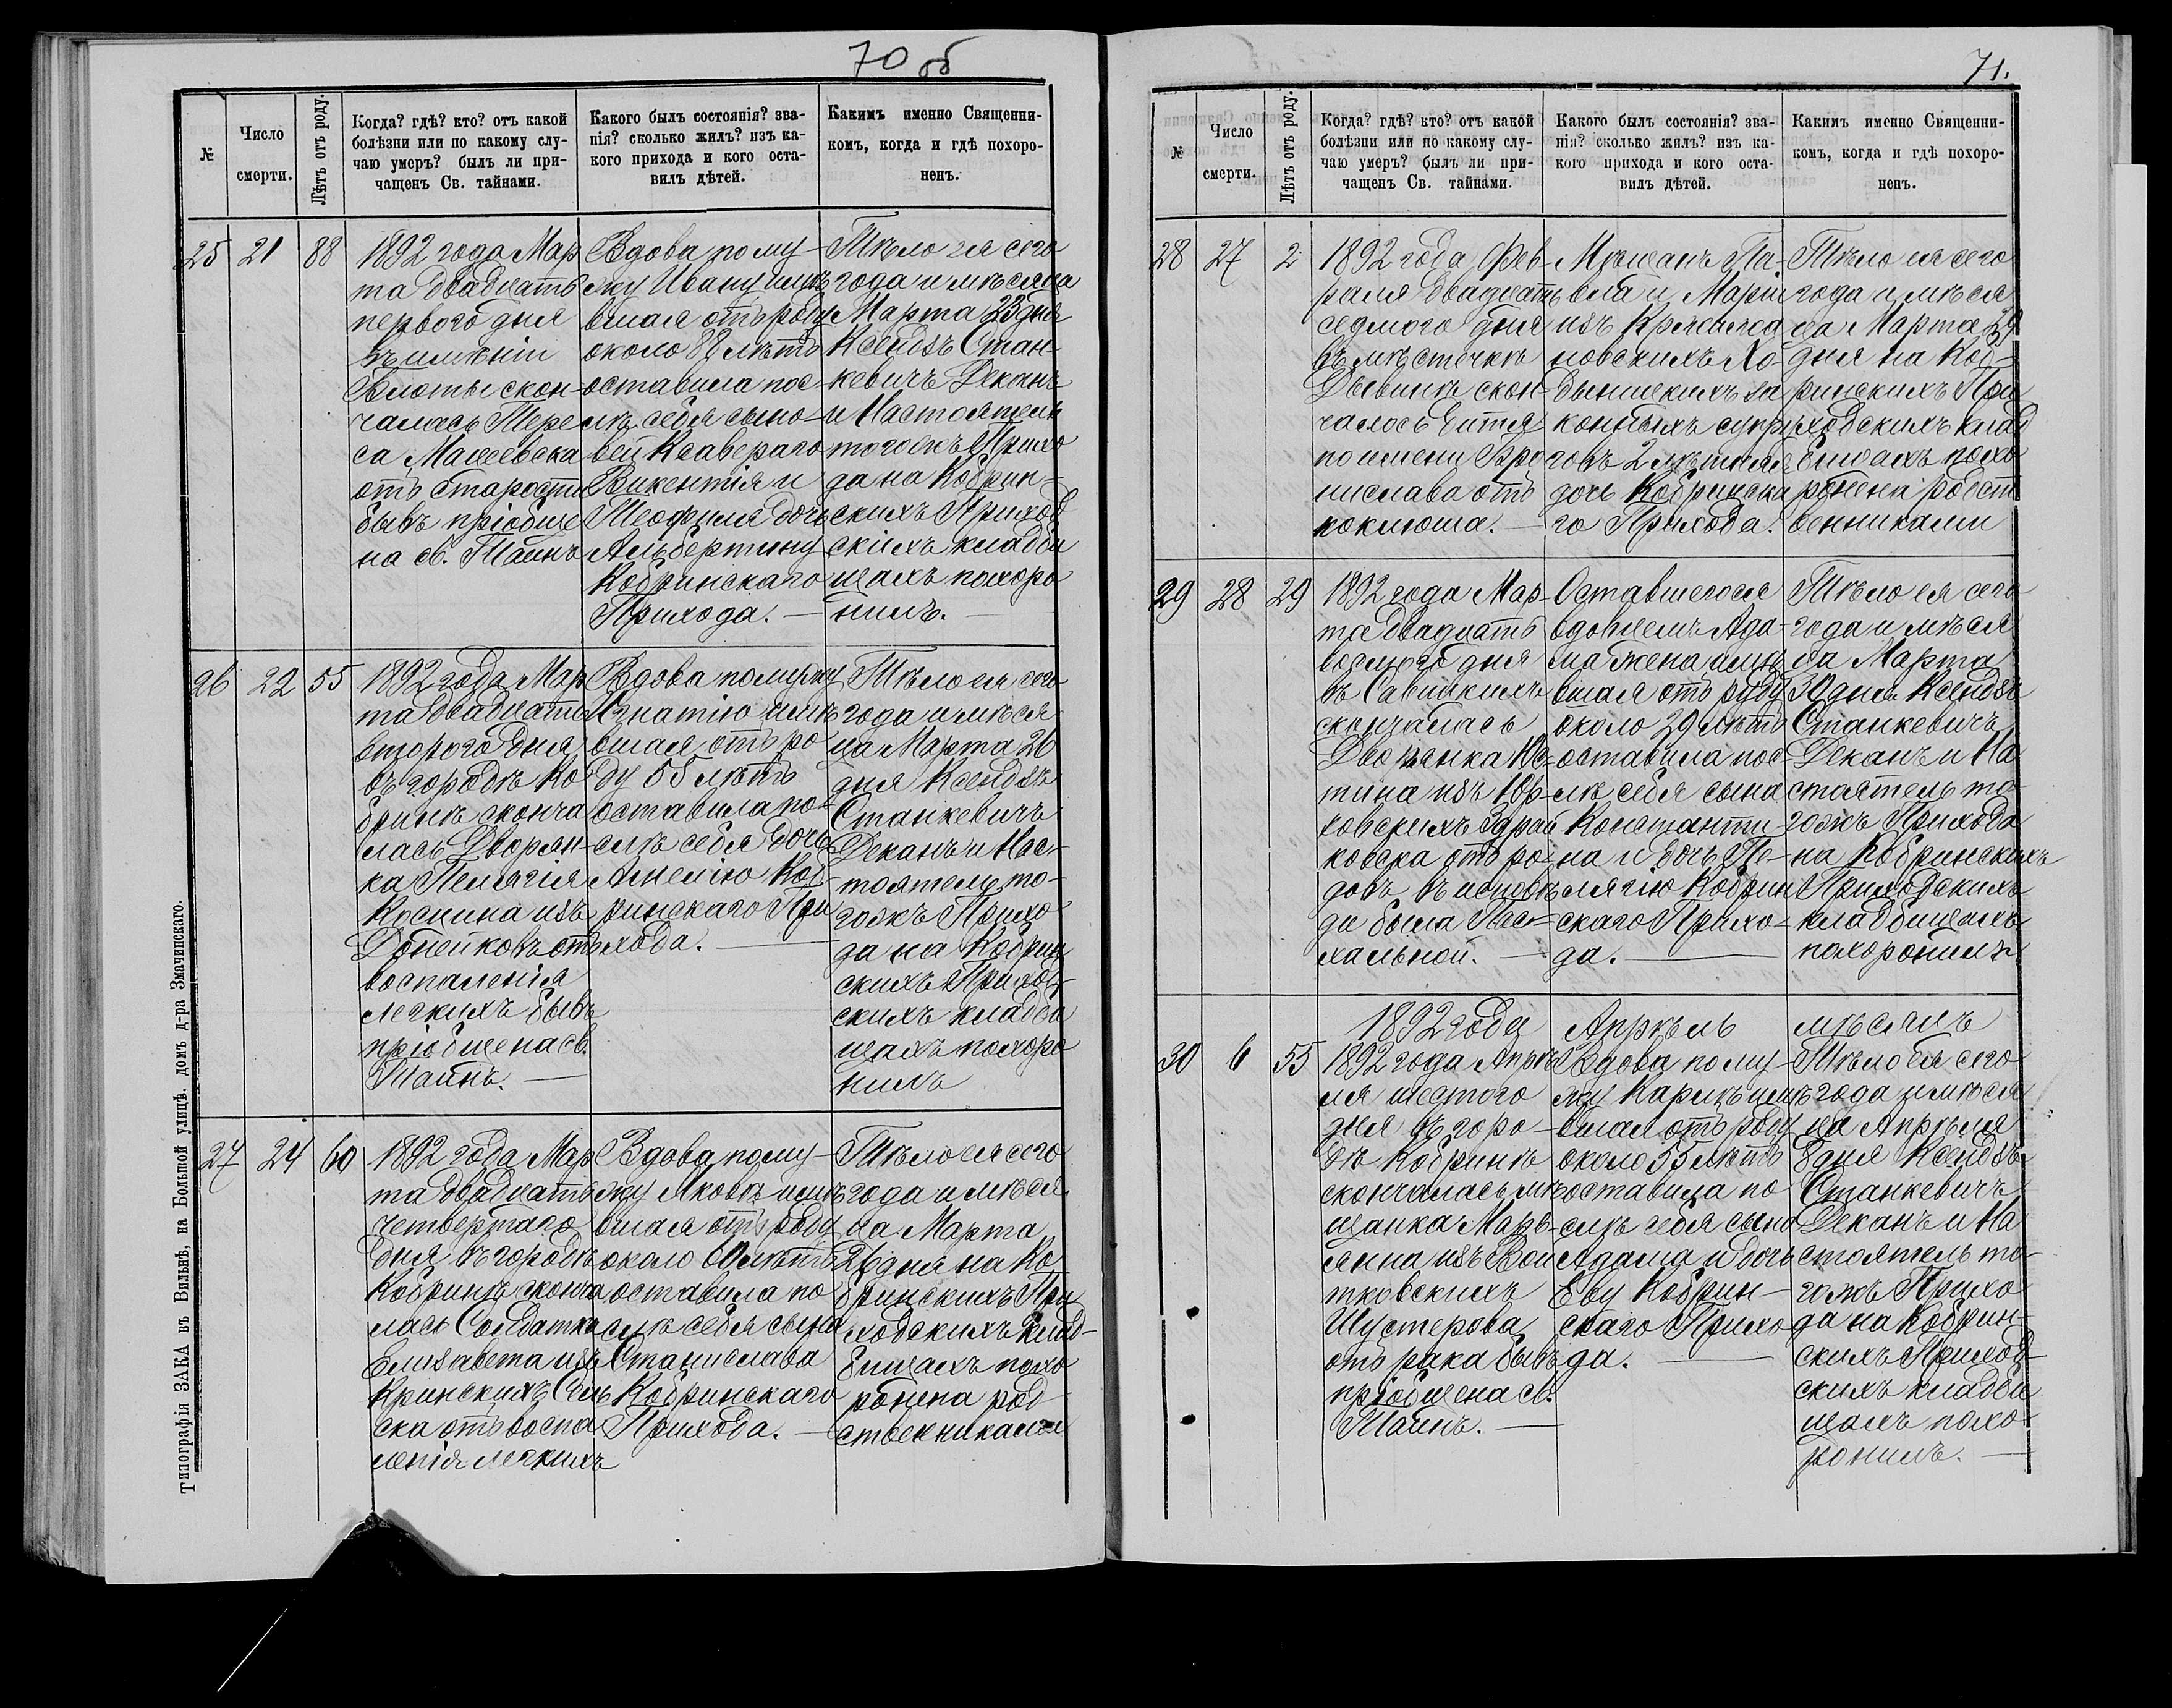 70 об
№
Число
смерти.
Лѣтъ отъ роду.
Когда? гдѣ? кто? отъ какой
болѣзни или по какому слу-
чаю умеръ? былъ ли при-
чащенъ Св. тайнами.
Какого былъ состоянія? зва-
нія? сколько жилъ? изъ ка-
кого прихода и кого оста-
вилъ дѣтей.
Какимъ именно Священни-
комъ, когда и гдѣ похоро-
ненъ.
25
21
88
1892 года Мар
та двадцать
первого дня
въ имѣніи
скон-
чалась Тере
са
отъ старости
бывъ пріобще
на св. Таинъ
Вдова по му-
жу Ивану имѣ
вшая отъ роду
около 88 лѣтъ
оставила пос-
лѣ себя сыно-
вей Ксаверяго
Викентія и
Теофиля дочь
Альбертину
Кобринскаго
Прихода. —
Тѣло ея сего
года и мѣсяца
Марта 23 дня
Ксендзъ Стан-
кевичъ Деканъ
и Настоятель
тогожъ Прихо
да на Кобрин-
скихъ Приход
скихъ кладби
щахъ похоро
нилъ. —
26
22
55
1892 года Мар
та двадцать
второго дня
въ городѣ Ко
бринѣ сконча
лась Дворян-
ка Пелягія
Коснина изъ
отъ
воспаленія
легкихъ бывъ
пріобщена св.
Таинъ. —
Вдова по мужу
Игнатію имѣ
вшая отъ ро
ду 55 лѣтъ
оставила по-
слѣ себя дочь
Амелію Коб-
ринскаго При
хода. —
Тѣло ея сего
года и мѣся
ца Марта 26
дня Ксендзъ
Станкевичъ
Деканъ и Нас-
тоятель то-
гожъ Прихо
да на Кобрин
скихъ Приход
скихъ кладби
щахъ похоро
нилъ
27
24
60
1892 года Мар
та двадцать
четвертаго
дня въ городѣ
Кобринѣ сконча
лась Солдатка
Елизавета изъ
Кринскихъ
ска отъ воспа
ленія легкихъ
Вдова по му-
жу Якову имѣ
вшая отъ роду
около 60 лѣтъ
оставила по
слѣ себя сына
Станислава
Кобринскаго
Прихода. —
Тѣло ея сего
года и мѣся
ца Марта
26 дня на Ко
бринскихъ При
ходскихъ клад-
бищахъ похо
ронена род
ственниками
Типографія ЗАКА въ Вильнѣ, на Большой улицѣ, домъ д-ра Змачинскаго.
71.
№
Число
смерти.
Лѣтъ отъ роду.
Когда? гдѣ? кто? отъ какой
болѣзни или по какому слу-
чаю умеръ? былъ ли при-
чащенъ Св. тайнами.
Какого былъ состоянія? зва-
нія? сколько жилъ? изъ ка-
кого прихода и кого оста-
вилъ дѣтей.
Какимъ именно Священни-
комъ, когда и гдѣ похоро-
ненъ.
28
27
2
1892 года Фев-
раля двадцать
седмого дня
въ мѣстечкѣ
Дывинѣ скон-
чалось дитя
по имени Бро
нислава отъ
коклюша. —
Мѣщанъ Па-
вла и Маріи
изъ
новскихъ Хо-
за
конныхъ супру
говъ 2 лѣтняя
дочь Кобринска
го Прихода.
Тѣло ея сего
года и мѣся
ца Марта 29
дня на Коб-
ринскихъ При
ходскихъ клад
бищахъ похо
ронена родст
венниками
29
28
29
1892 года Мар-
та двадцать
восмого дня
въ Савицкихъ
скончалась
Дворянка Юс-
тина изъ Юр-
ковскихъ Здрай
ковска отъ ро-
довъ въ исповѣ
ди была Пас-
хальной. —
Оставшегося
вдовцемъ Ада-
ма жена имѣ
вшая отъ роду
около 29 лѣтъ
оставила пос-
лѣ себя сына
Константи
на и дочь Пе-
лягію Кобрин
скаго Прихо-
да. —
Тѣло ея сего
года и мѣся
ца Марта
30 дня Ксендзъ
Станкевичъ
Деканъ и На
стоятель то-
гожъ Прихода
на Кобринскихъ
Приходскихъ
кладбищахъ
похоронилъ
1892 года Апрѣль мѣсяцъ
30
6
55
1892 года Апрѣ
ля шестого
дня въ горо-
дѣ Кобринѣ
скончалась мѣ
щанка Марь-
янна изъ Вой
тковскихъ
Шустерова
отъ рака бывъ
пріобщена св.
Таинъ. —
Вдова по му-
жу Карлѣ имѣ
вшая отъ роду
около 55 лѣтъ
оставила по-
слѣ себя сына
Адама и дочь
Еву Кобрин-
скаго Прихо
да. —
Тѣло ея сего
года и мѣся
ца Апрѣля
8 дня Ксендзъ
Станкевичъ
Деканъ и На
стоятель то-
гожъ Прихо
да на Кобрин-
скихъ Приход-
скихъ кладби
щахъ похо-
ронилъ. —